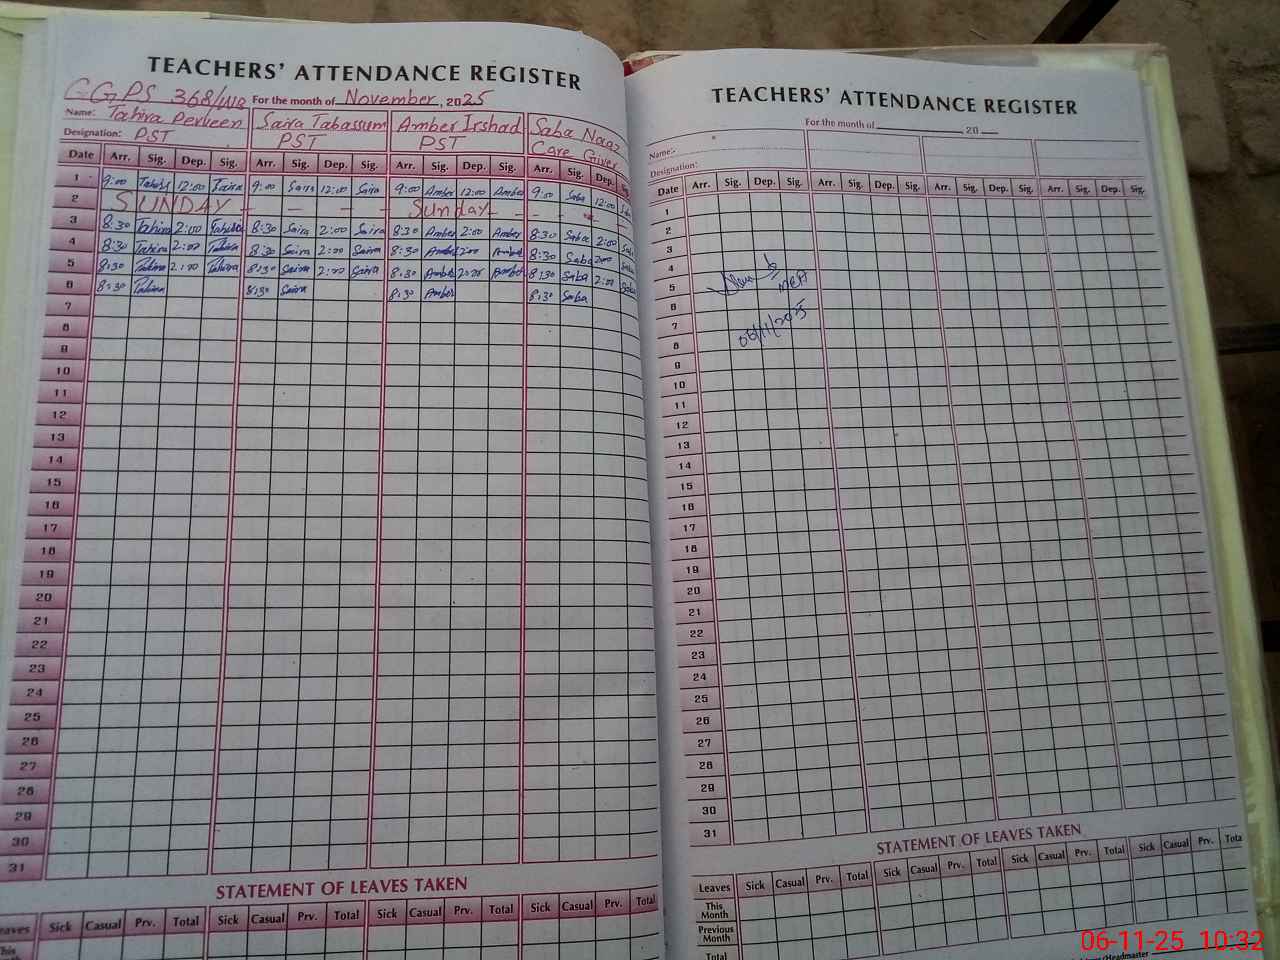 TEACHERS' ATTENDANCE REGISTER
GGPS 368/WB For the month of November, 2025
Name: Tahira Perveen Saira Tabassum Amber Irshad Saba Nawaz
Designation: PST PST PST Care Giver
Date Arr. Sig. Dep. Sig. Arr. Sig. Dep. Sig. Arr. Sig. Dep. Sig. Arr. Sig. Dep. Sig.
1 9:00 Tahira 12:00 Tahira 9:00 Saira 12:00 Saira 9:00 Amber 12:00 Amber 9:00 Saba 12:00 Saba
2 SUNDAY - - - - Sunday - - -
3 8:30 Tahira 2:00 Tahira 8:30 Saira 2:00 Saira 8:30 Amber 2:00 Amber 8:30 Saba 2:00 Saba
4 8:30 Tahira 2:00 Tahira 8:30 Saira 2:00 Saira 8:30 Amber 2:00 Amber 8:30 Saba 2:00 Saba
5 8:30 Tahira 2:00 Tahira 8:30 Saira 2:00 Saira 8:30 Amber 2:00 Amber 8:30 Saba 2:00 Saba
6 8:30 Tahira 8:30 Saira 8:30 Amber 8:30 Saba
7
8
9
10
11
12
13
14
15
16
17
18
19
20
21
22
23
24
25
26
27
28
29
30
31
STATEMENT OF LEAVES TAKEN
Leaves Sick Casual Prv. Total Sick Casual Prv. Total Sick Casual Prv. Total Sick Casual Prv. Total
This
TEACHERS' ATTENDANCE REGISTER
For the month of 20
Name:-
Designation:
Date Arr. Sig. Dep. Sig. Arr. Sig. Dep. Sig. Arr. Sig. Dep. Sig. Arr. Sig. Dep. Sig.
1
2
3
4
5
MEA
6
7
06/11/2025
8
9
10
11
12
13
14
15
16
17
18
19
20
21
22
23
24
25
26
27
28
29
30
31
STATEMENT OF LEAVES TAKEN
Leaves Sick Casual Prv. Total Sick Casual Prv. Total Sick Casual Prv. Total Sick Casual Prv. Tota
This Month
Previous Month
Total
/Headmaster
06-11-25 10:32